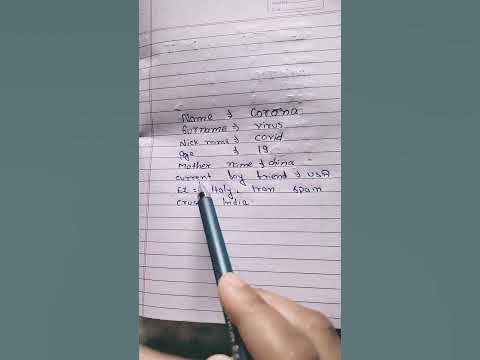 Name → Corona
Surname → virus
Nick name → covid
Age → 19
Mother name → china
current boy friend → USA
Ex = Itoly, Iran Spain
Crush India.